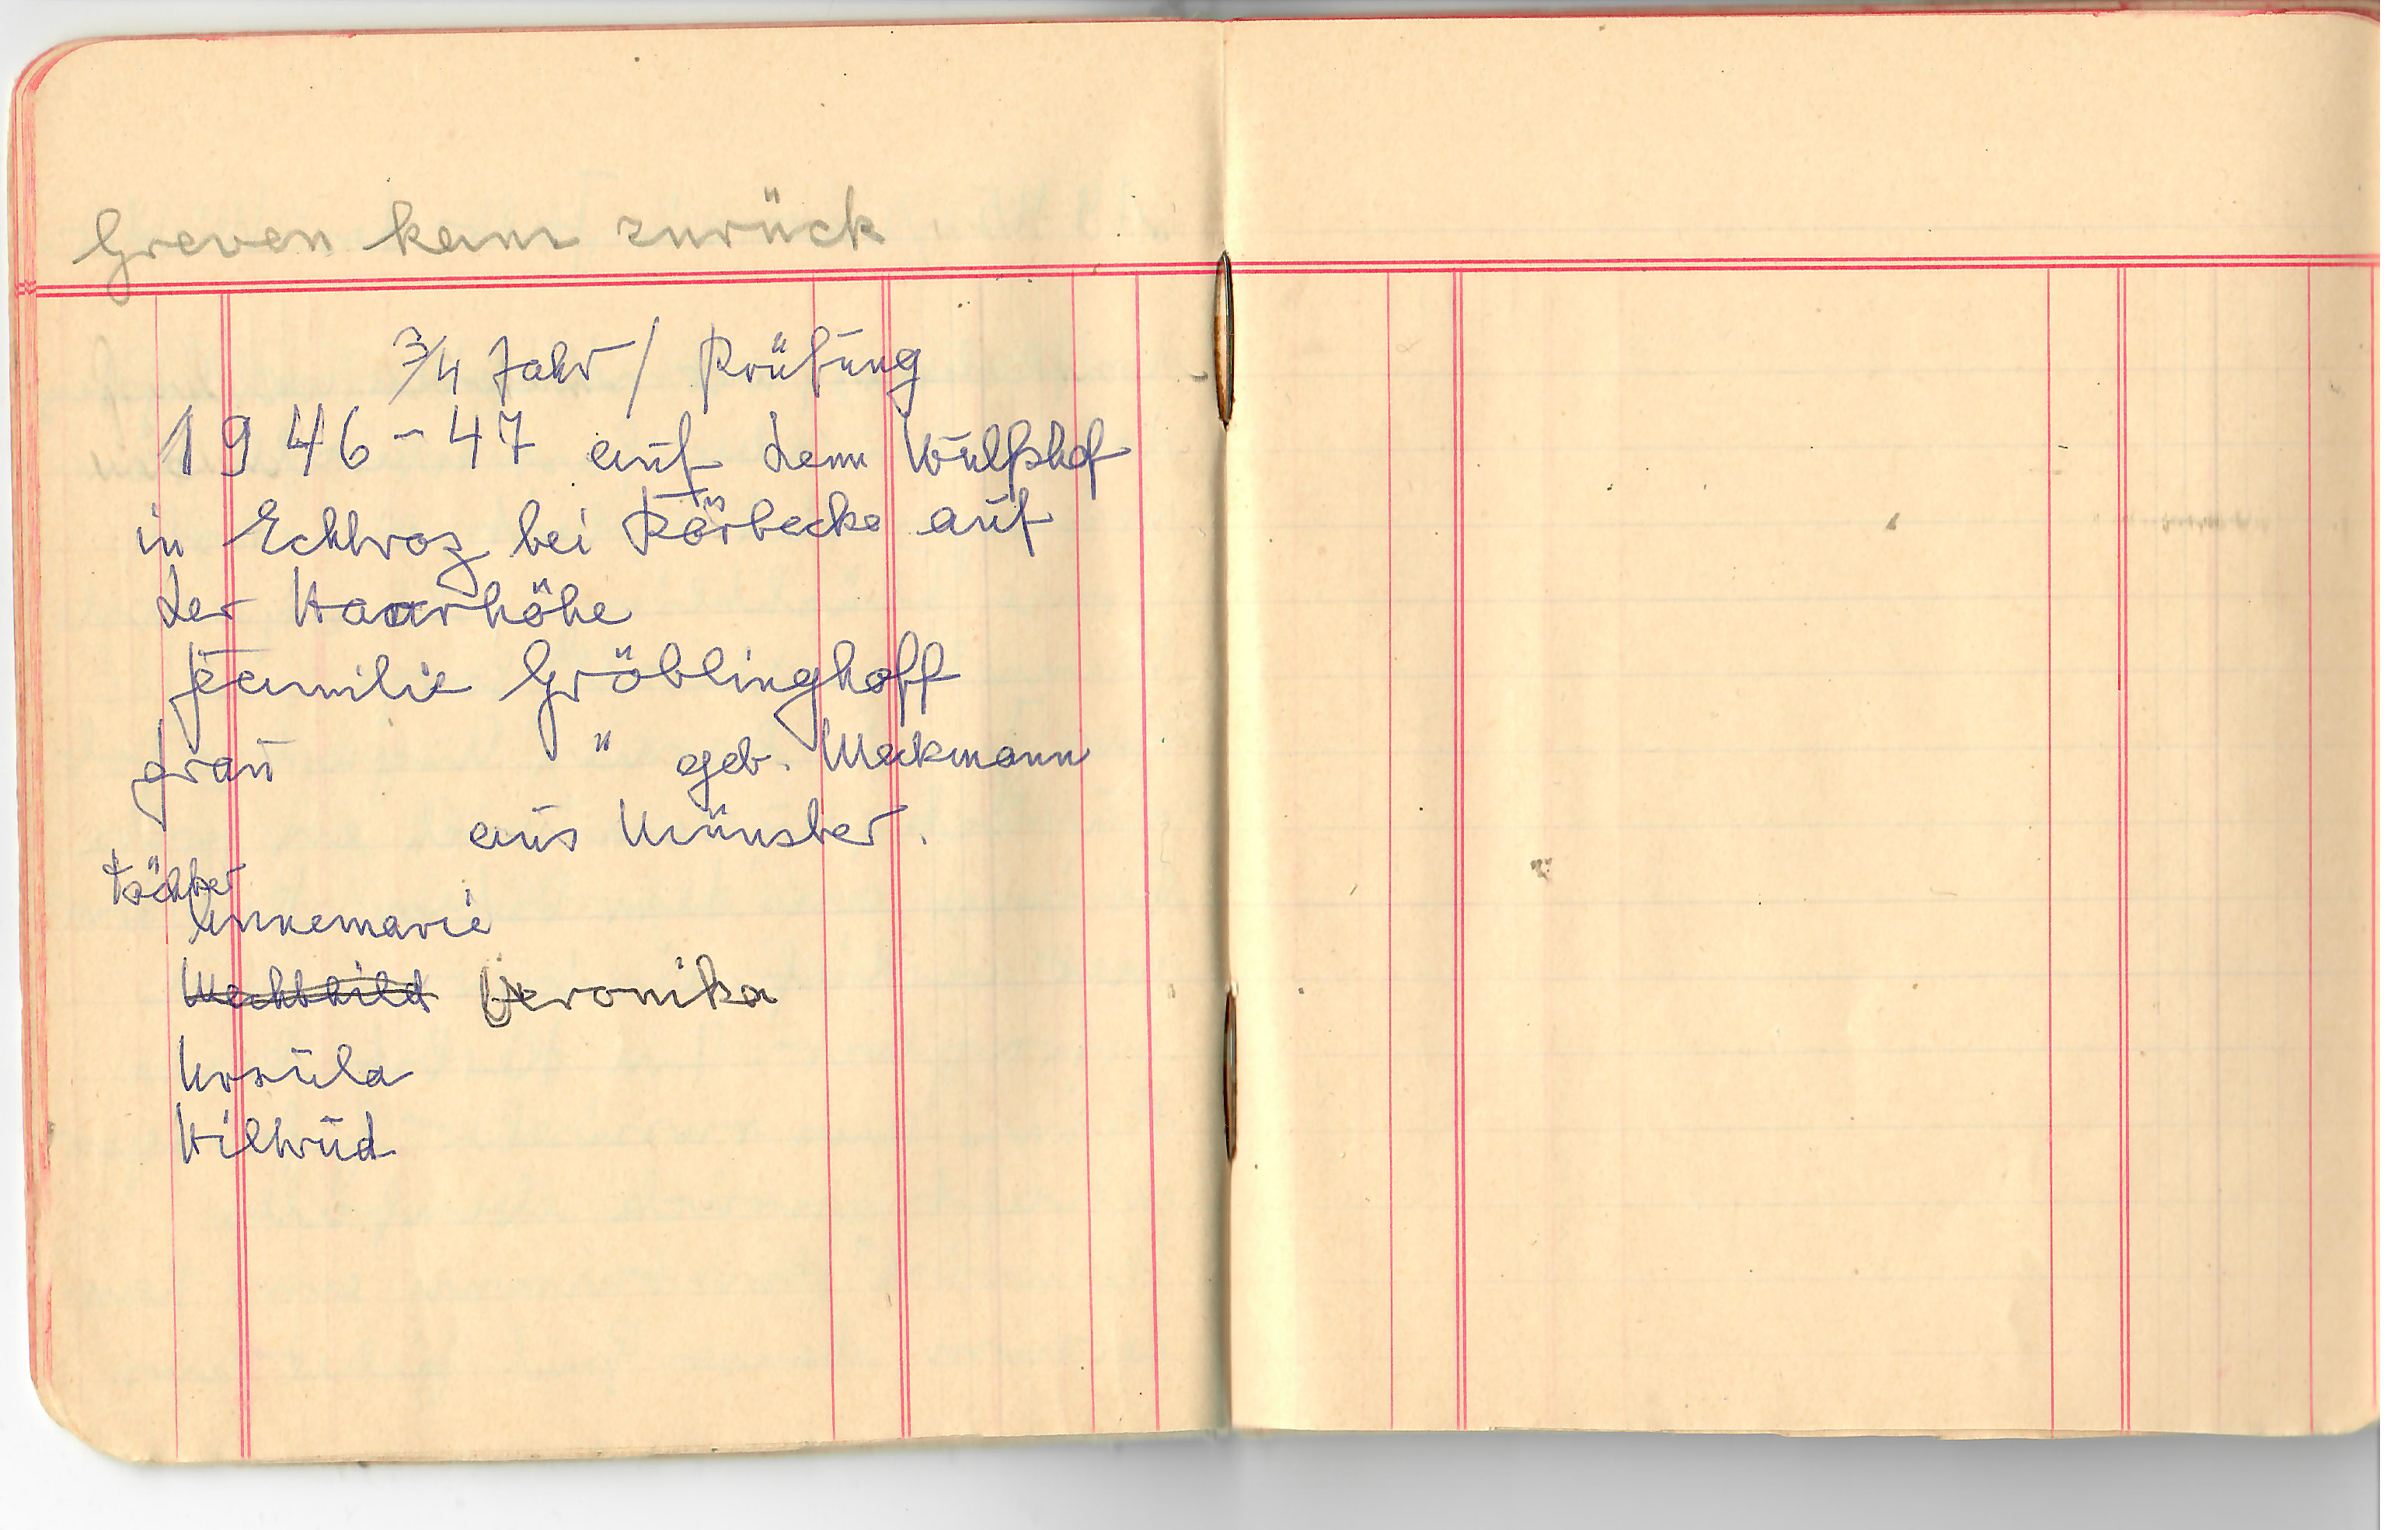 Greven kam zurück
3/4 Jahr / Prüfung
1946-47 auf dem Wulfshof
in Echtroz bei Körbecke auf
der Haarhöhe
Familie Gröblinghoff
Frau " geb. Meckmann
aus Münster.
Töchter
Annemarie
Mechthild Veronika
Ursula
Hiltrud